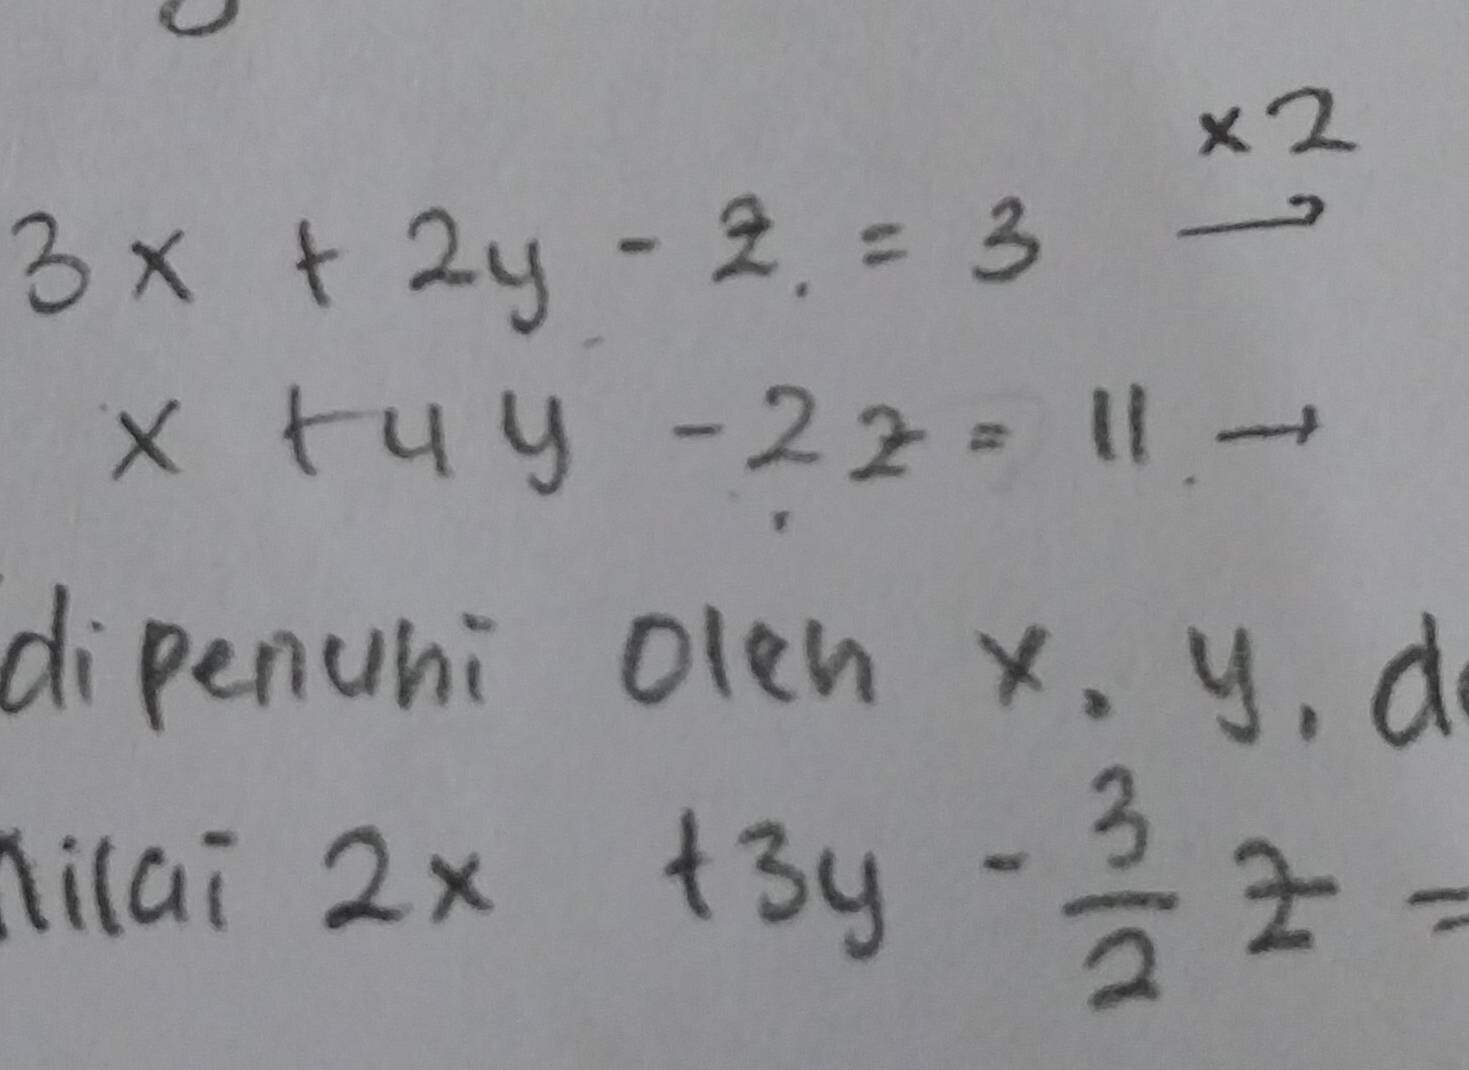 ×2
3x + 2y - z = 3 →
x + 4y - 2z = 11 →
dipenuhi oleh x, y,
nilai 2x + 3y - 3/2 z =